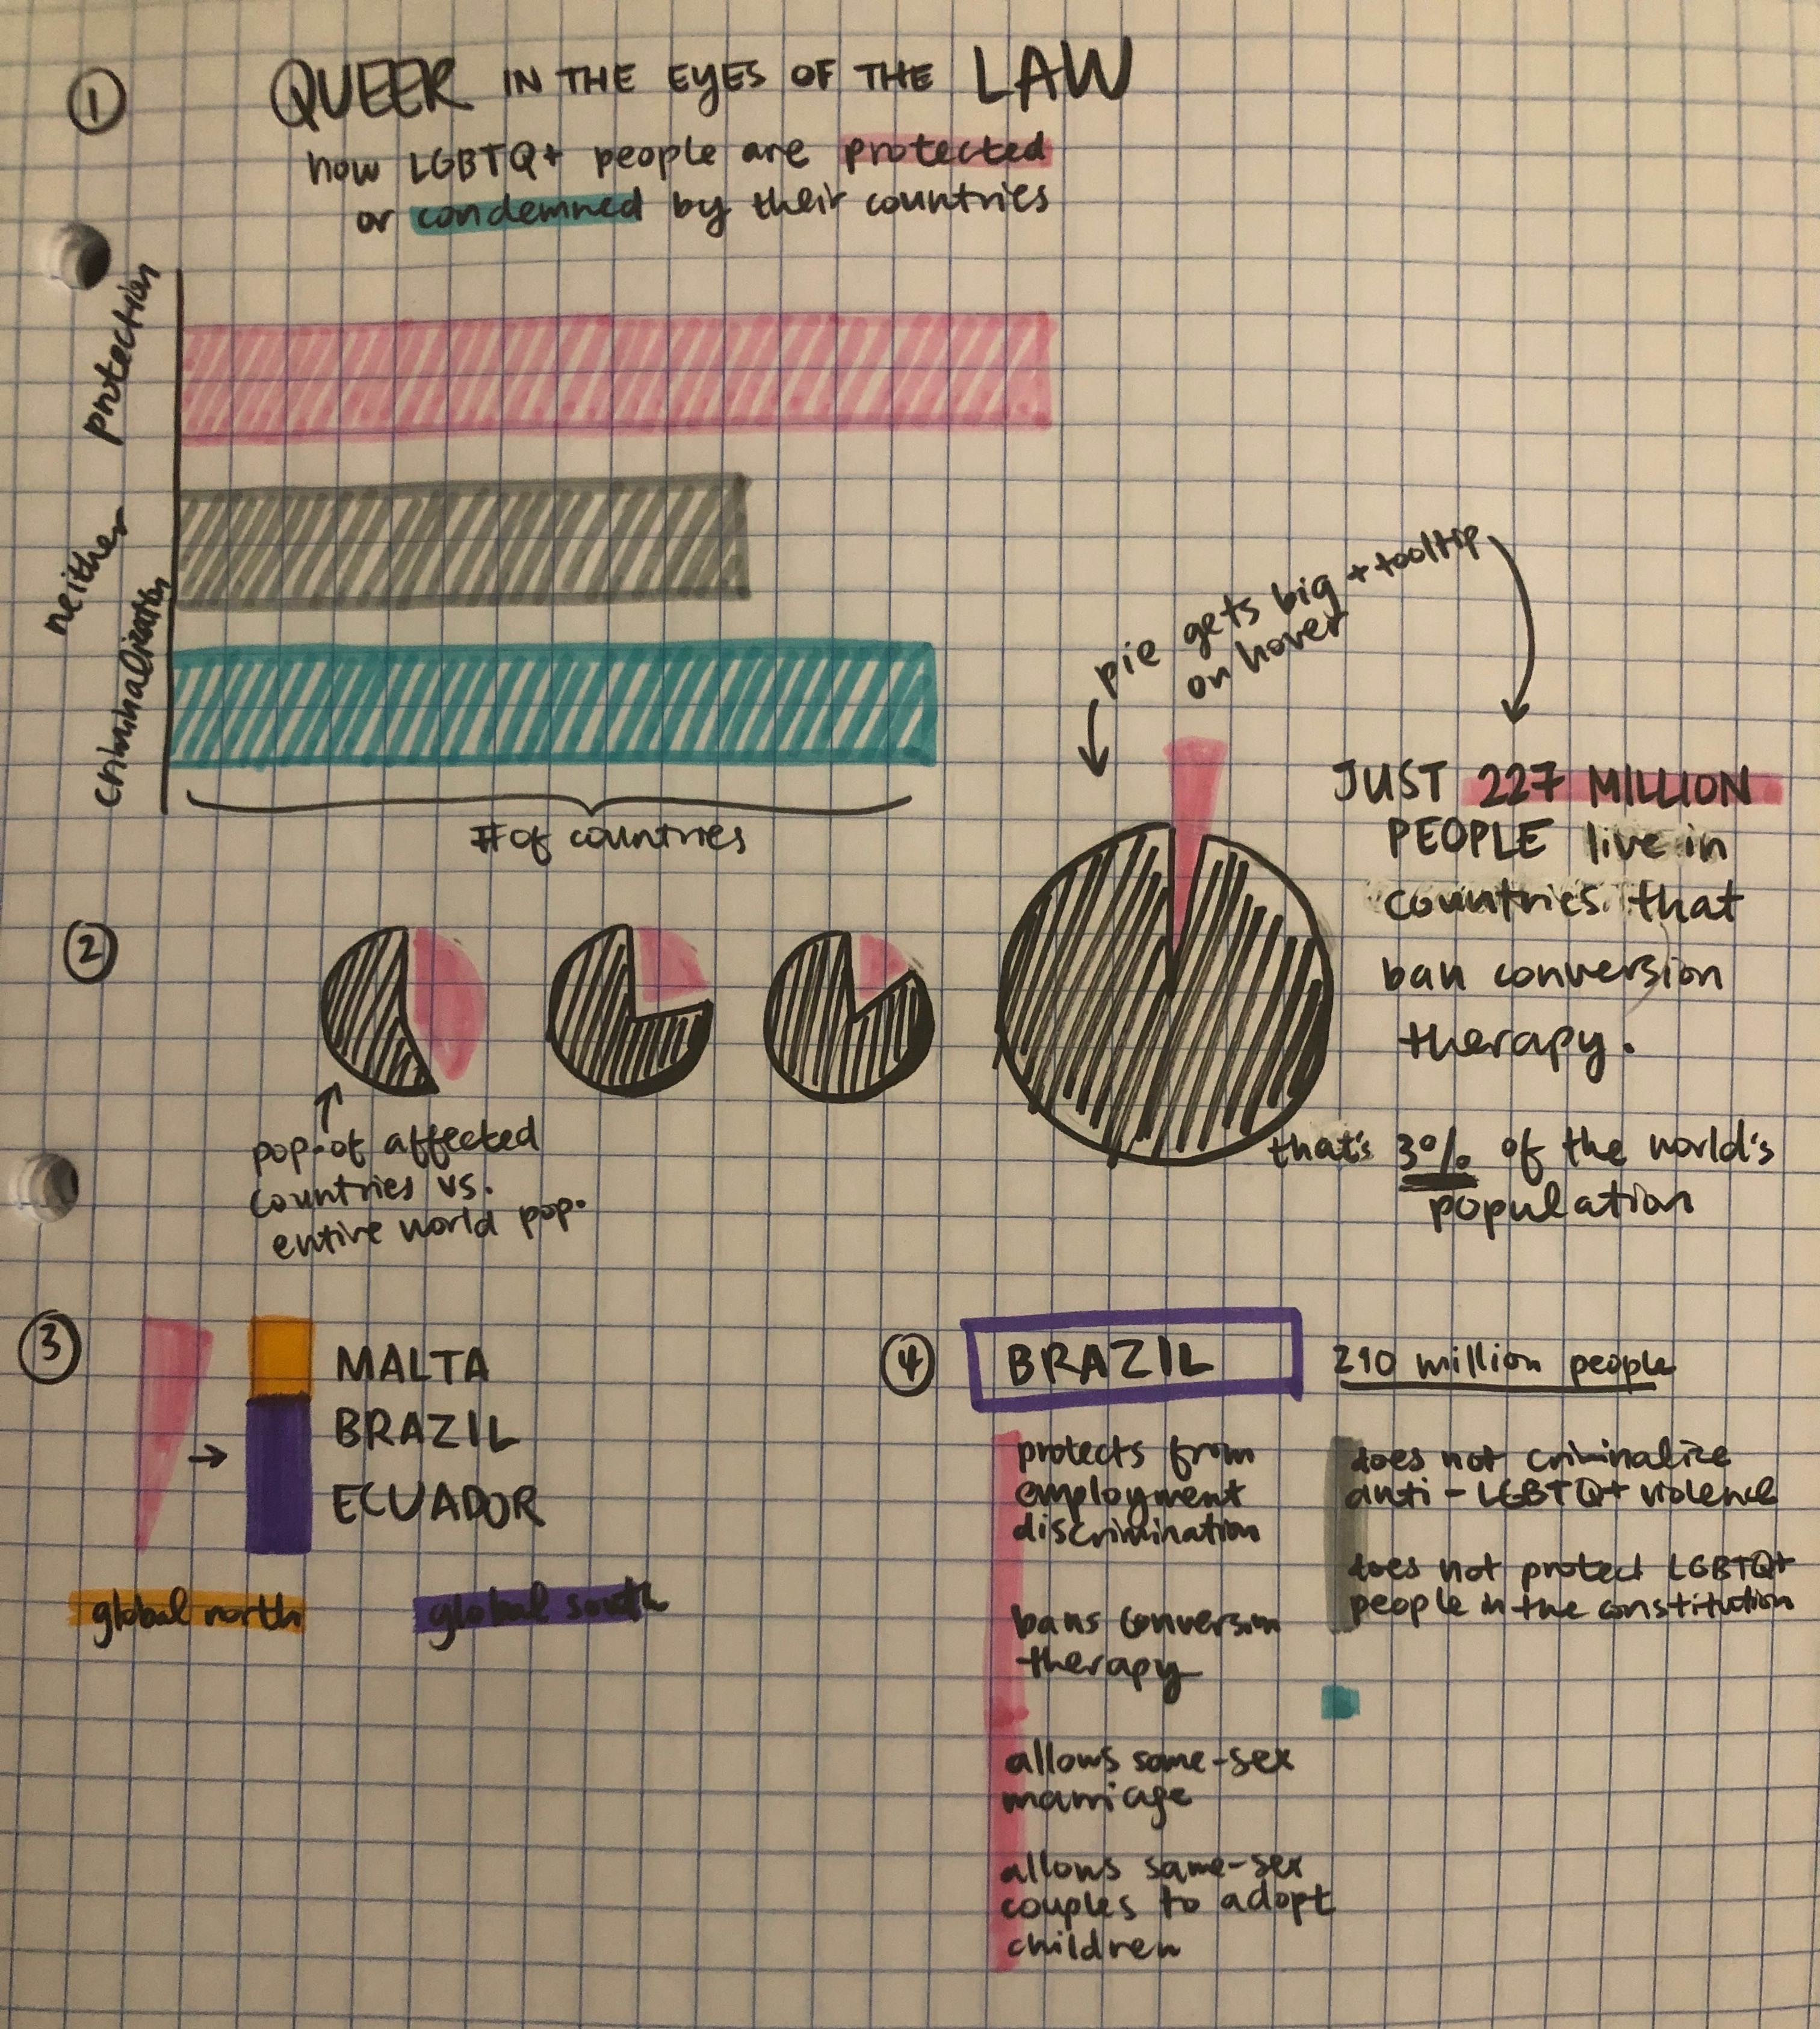 1
QUEER IN THE EYES OF THE LAW
how LGBTQ+ people are protected
or condemned by their countries
protection
neither
criminalization
# of countries
pie gets big + tooltip
on hover
JUST 227 MILLION
PEOPLE live in
countries that
ban conversion
therapy.
that's 3% of the world's
population
2
pop. of affected
countries vs.
entire world pop.
3
MALTA
BRAZIL
ECUADOR
global north
global south
4
BRAZIL
210 million people
protects from
employment
discrimination
bans conversion
therapy
allows same-sex
marriage
allows same-sex
couples to adopt
children
does not criminalize
anti-LGBTQ+ violence
does not protect LGBTQ+
people in the constitution